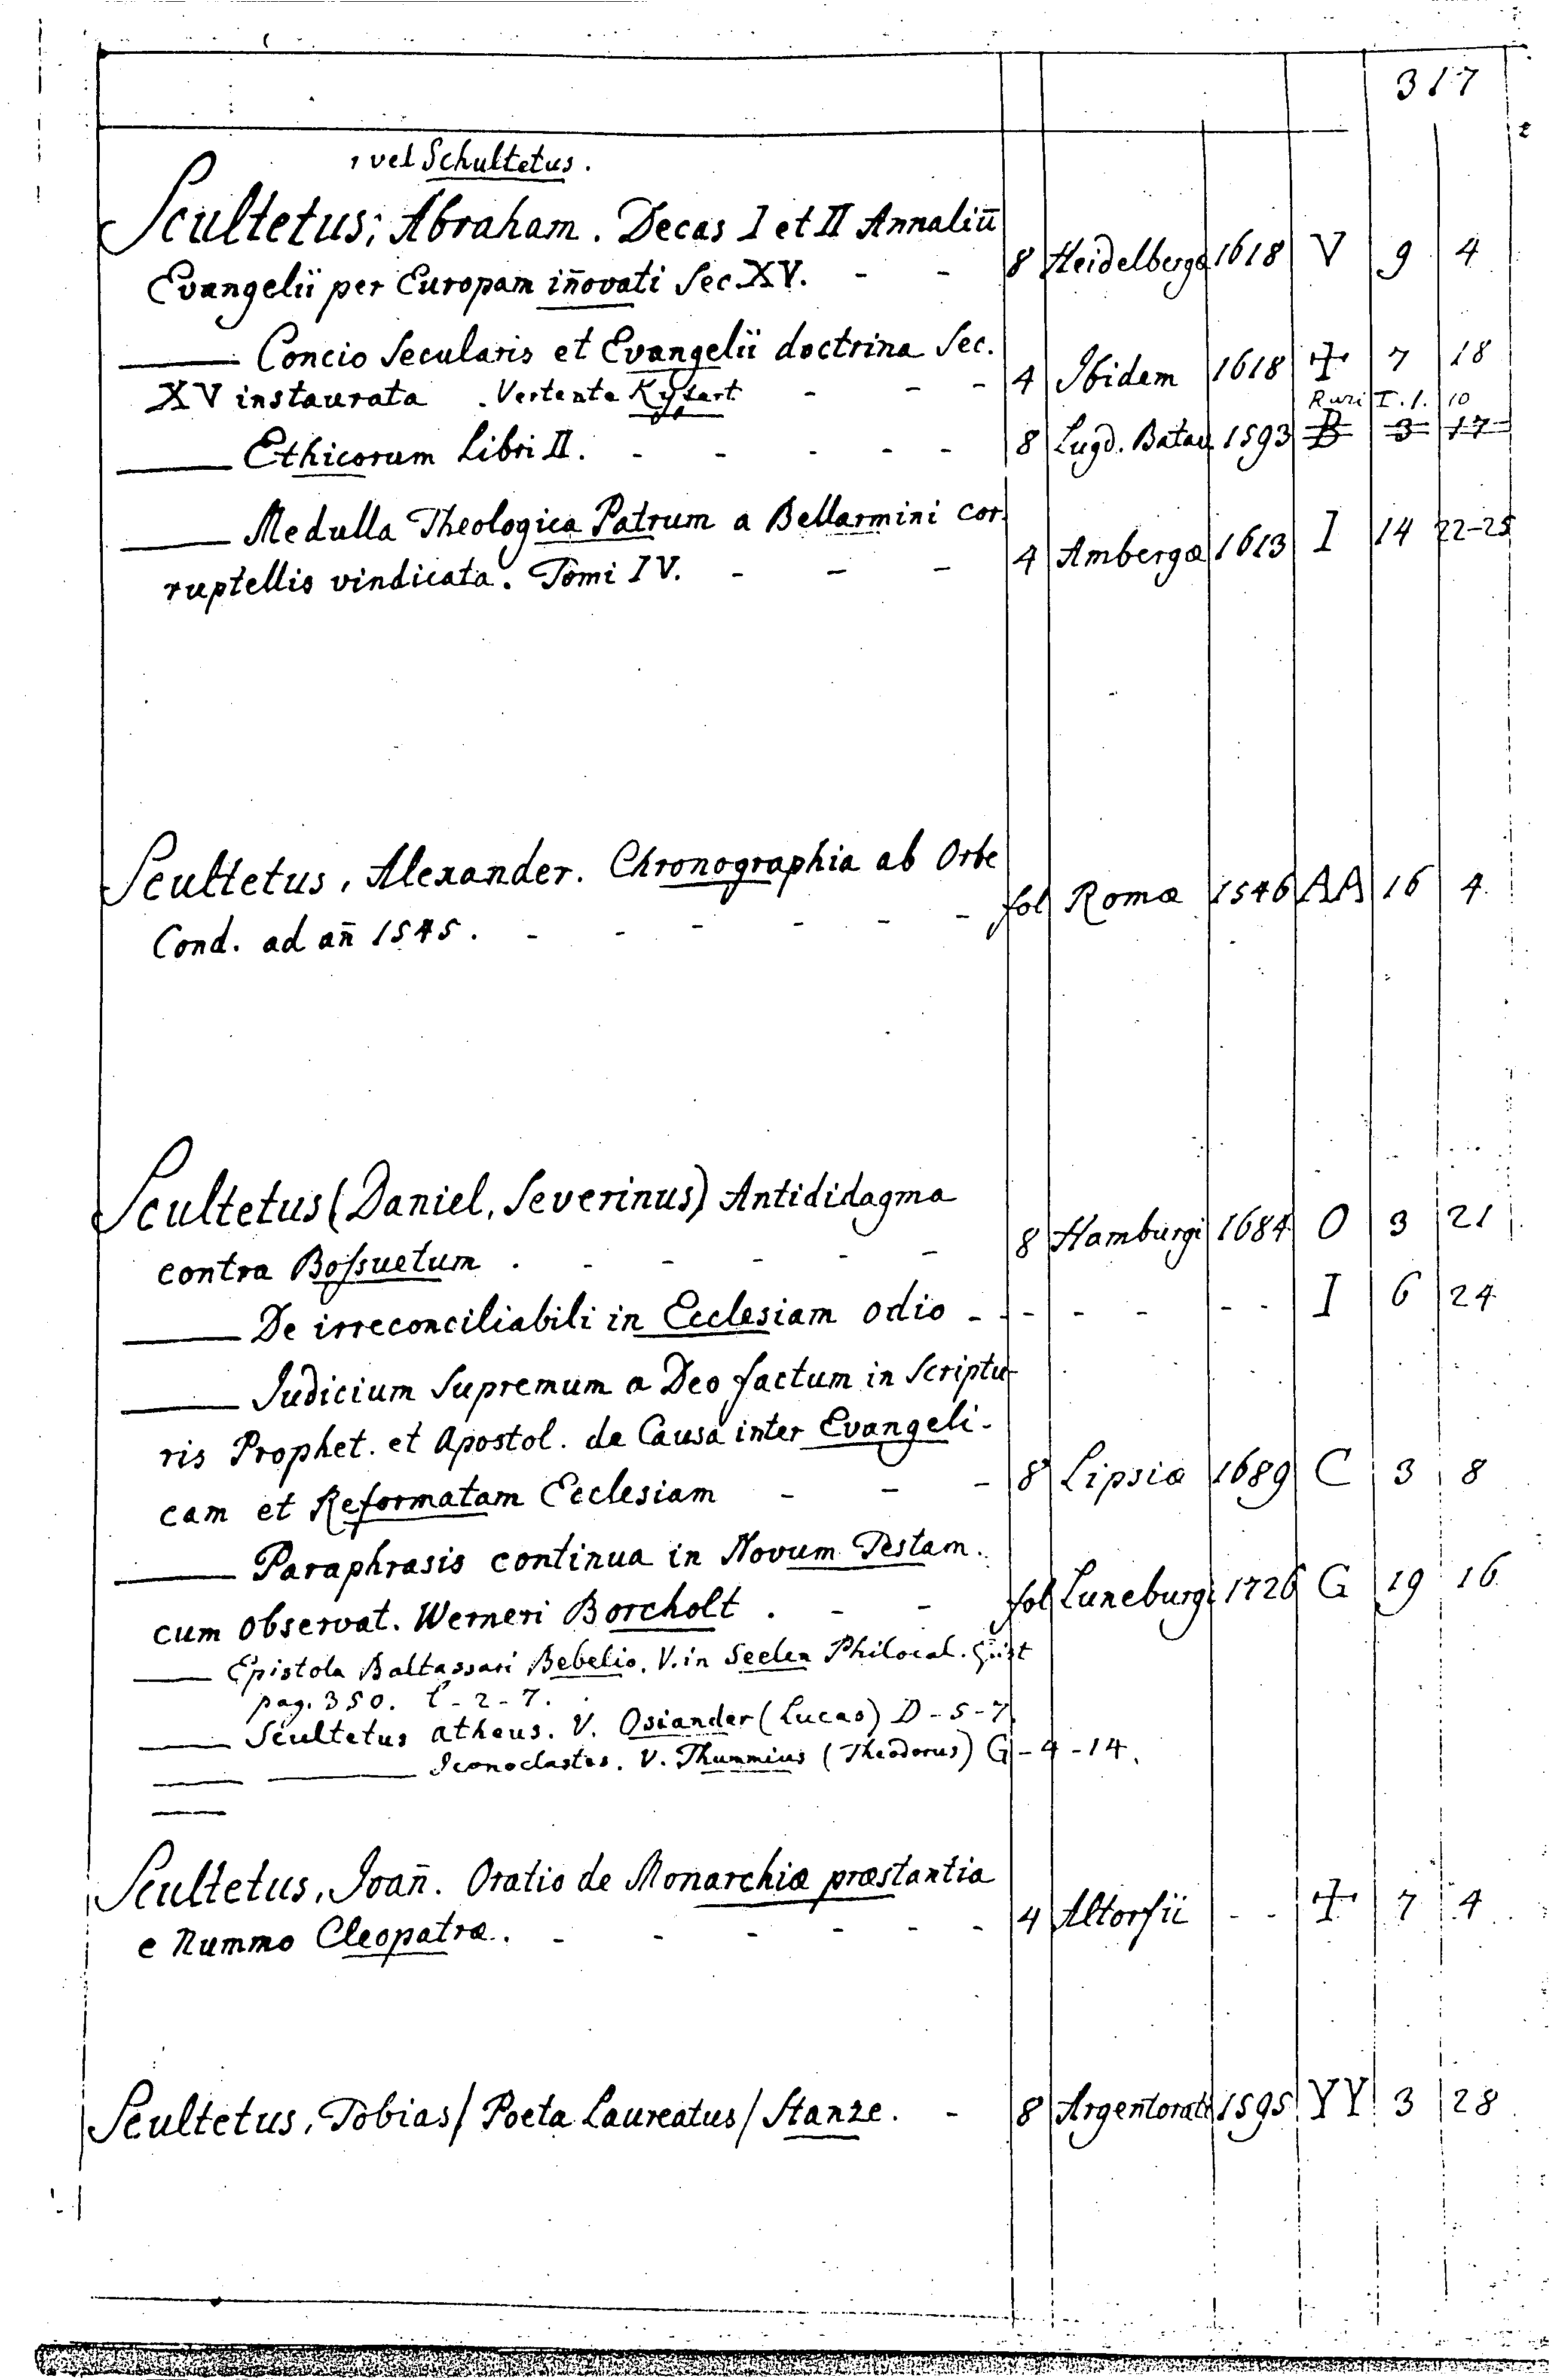 317
, vel Schultetus.
Scultetus, Abraham. Decas I et II Annaliū
Evangelii per Europam iñovati Sec. XV. - - 8 Heidelbergæ 1618 V 9 4
—— Concio Secularis et Evangelii doctrina Sec.
XV instaurata. Vertente - - - 4 Ibidem 1618 ☩ 7 18
Ruri I. 1. 10
—— Ethicorum Libri II. - - - - - 8 Lugd. Batav. 1593 B 3 17
—— Medulla Theologica Patrum a Bellarmini cor-
ruptellis vindicata. Tomi IV. - - - 4 Ambergæ 1613 I 14 22-25
Scultetus, Alexander. Chronographia ab Orbe
Cond. ad añ 1545. - - - - - - fol Romæ 1546 AA 16 4
Scultetus (Daniel, Severinus) Antididagma
contra Bossuetum. - - - - - 8 Hamburgi 1684 O 3 21
—— De irreconciliabili in Ecclesiam odio - - - - - - - I 6 24
—— Judicium Supremum a Deo factum in Scriptu-
ris Prophet. et Apostol. de Causa inter Evangeli-
cam et Reformatam Ecclesiam - - - 8 Lipsiæ 1689 C 3 8
—— Paraphrasis continua in Novum Testam.
cum observat. Werneri Borcholt. - - fol Luneburgi 1726 G 19 16
—— Epistola Baltassari Bebelio. V. in Seelen Philocal.
pag. 350. - 2 - 7.
—— Scultetus atheus. V. Osiander (Lucas) D - 5 - 7
—— —— Iconoclastes. V. Thummius (Theodorus) G - 4 - 14.
——
Scultetus, Joañ. Oratio de Monarchiæ præstantia
e Nummo Cleopatræ. - - - - - - 4 Altorfii - - ☩ 7 4
Scultetus, Tobias / Poeta Laureatus / Stanze. - 8 Argentorati 1595 YY 3 28